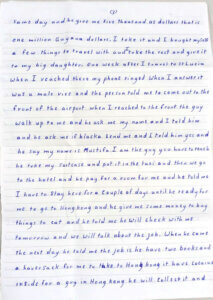 (2)
same day and he give me five thousand us dollars that is
one million Guyana dollars. I take it and I bought myself
a few things to travel with and take the rest and give it
to my big daughter. One week after I travel to St Lucia
when I reached there my phone ringed when I answer it
was a male voice and the person told me to come out to the
front of the airport when I reached to the front the guy
walk up to me and he ask me my name and I told him
and he ask me if Alaska send me and I told him yes and
he say my name is Mustifa. I am the guy you have to reach
he take my suitcase and put it in the taxi and then we go
to the hotel and he pay for a room for me and he told me
I have to stay here for a couple of days until he ready for
me to go to Hong Kong and he give me some money to buy
things to eat and he told me he will check with me
tomorrow and we will talk about the job. When he came
the next day he told me the job is he have two books and
a haversack for me to take to Hong Kong it have cocaine
inside for a guy in Hong Kong he will collect it and